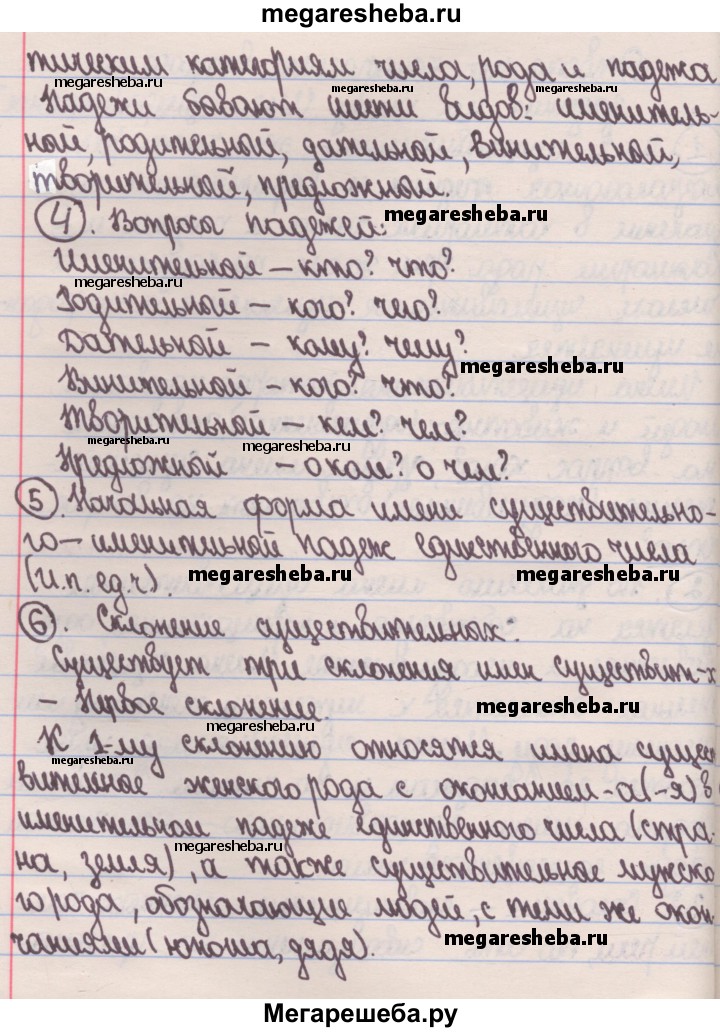 megaresheba.ru
тическим категориям числа, рода и падежа.
megaresheba.ru megaresheba.ru megaresheba.ru
Падежи бывают шести видов: именитель-
ный, родительный, дательный, винительный,
megaresheba.ru
творительный, предложный.
4. Вопросы падежей:
megaresheba.ru
Именительный – кто? что?
megaresheba.ru
Родительный – кого? чего?
Дательный – кому? чему?
megaresheba.ru
Винительный – кого? что?
Творительный – кем? чем?
megaresheba.ru megaresheba.ru
Предложный – о ком? о чем?
5. Начальная форма имени существительно-
го – именительный падеж единственного числа
(и.п. ед.ч). megaresheba.ru megaresheba.ru
6. Склонение существительных.
Существует три склонения имен существит-х
– Первое склонение.
megaresheba.ru megaresheba.ru
К 1-му склонению относятся имена сущест
megaresheba.ru
вительное женского рода с окончанием -а(-я) в
именительном падеже единственного числа (стра-
megaresheba.ru
на, земля), а также существительное мужско
го рода, обозначающие людей, с теми же окон-
чаниями (юноша, дядя).
megaresheba.ru
Мегарешеба.ру